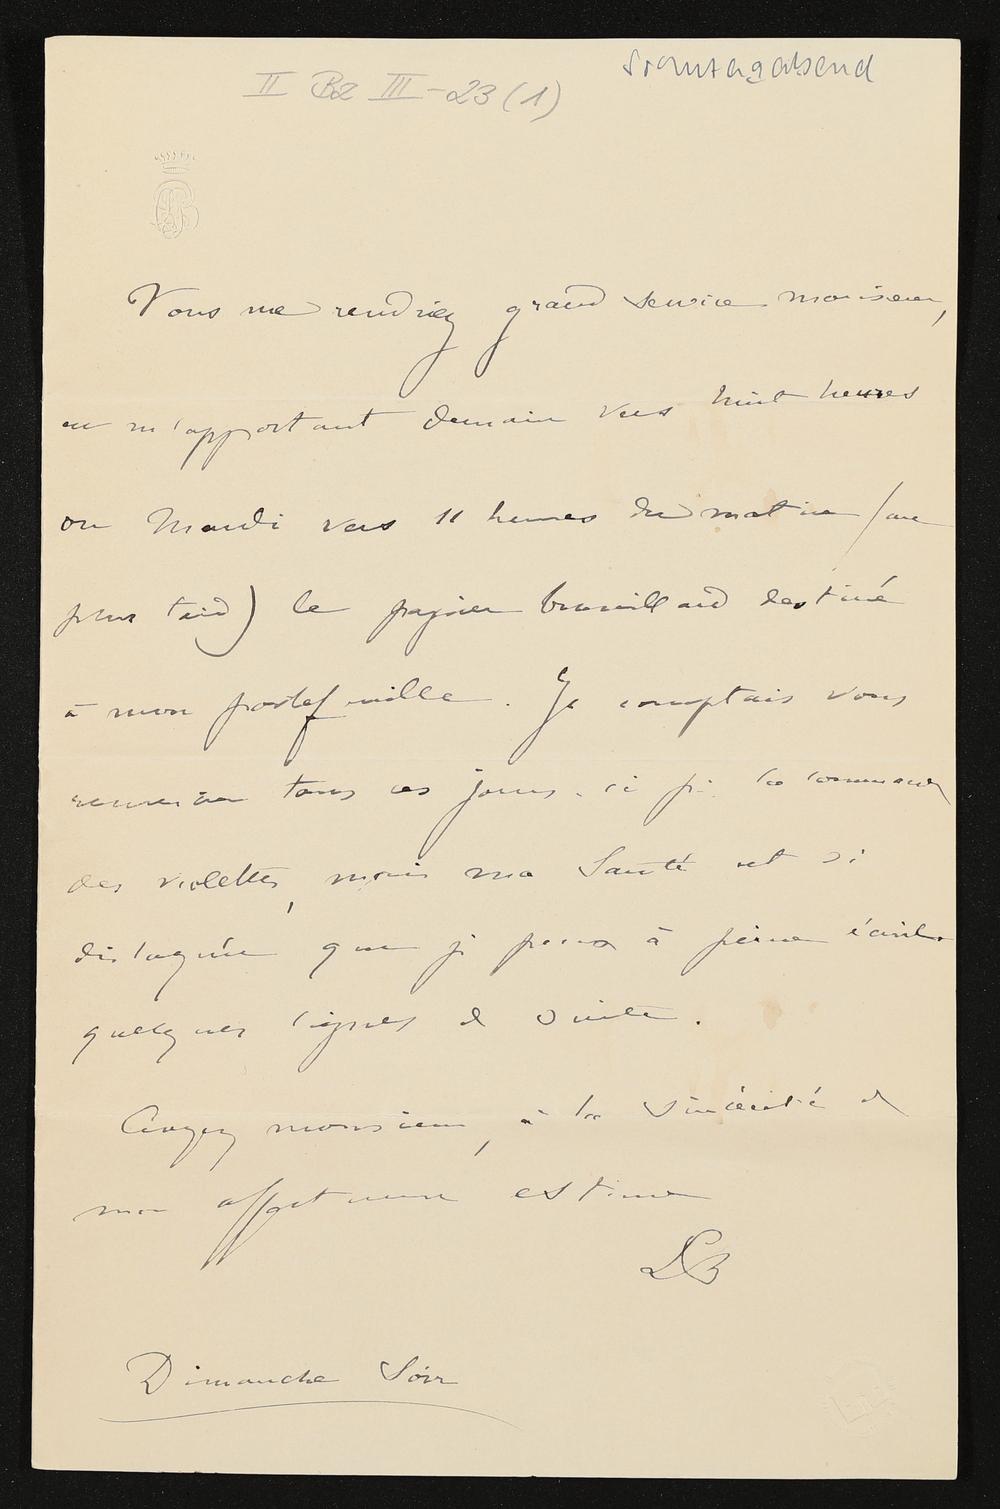 Sonntagabend
II BZ III-23 (1)
Vous me rendriez grand service monsieur,
en m'apportant demain vers huit heures
ou Mardi vers 11 heures du matin (au
plus tard) le papier brouillard destiné
à mon portefeuille. Je comptais vous
tous ces jours
des violettes, mais ma Santé est si
disloquée que je peux à peine écrire
quelques lignes de suite.
Croyez monsieur, à la sincérité de
mon affectueuse estime
LB
Dimanche Soir